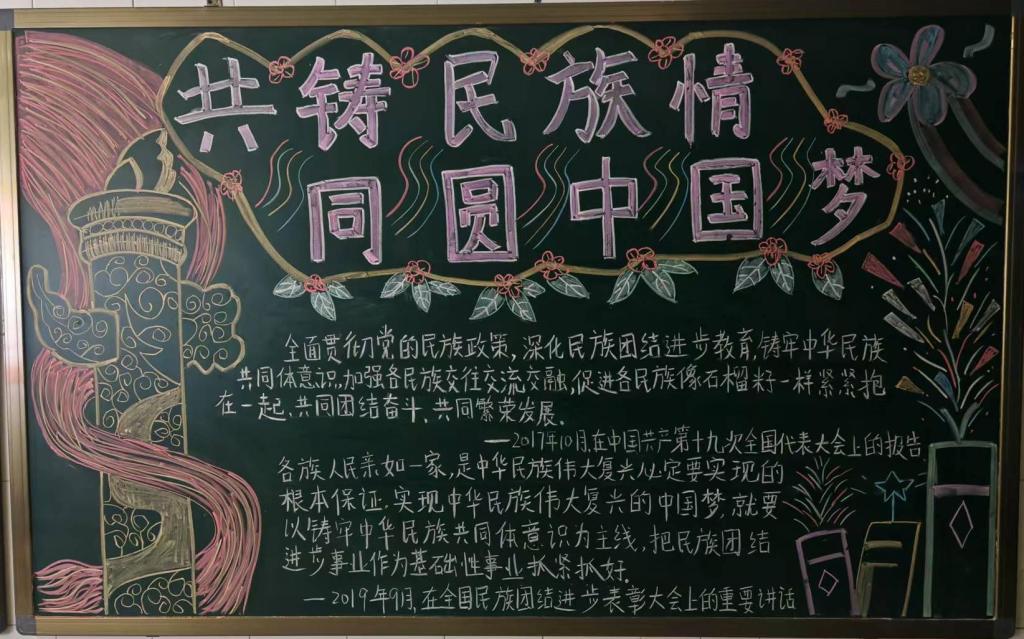 共铸民族情
同圆中国梦
全面贯彻党的民族政策,深化民族团结进步教育,铸牢中华民族
共同体意识,加强各民族交往交流交融,促进各民族像石榴籽一样紧紧抱
在一起,共同团结奋斗、共同繁荣发展。
—2017年10月,在中国共产第十九次全国代表大会上的报告
各族人民亲如一家,是中华民族伟大复兴必定要实现的
根本保证.实现中华民族伟大复兴的中国梦,就要
以铸牢中华民族共同体意识为主线,把民族团结
进步事业作为基础性事业抓紧抓好。
—2019年9月,在全国民族团结进步表彰大会上的重要讲话